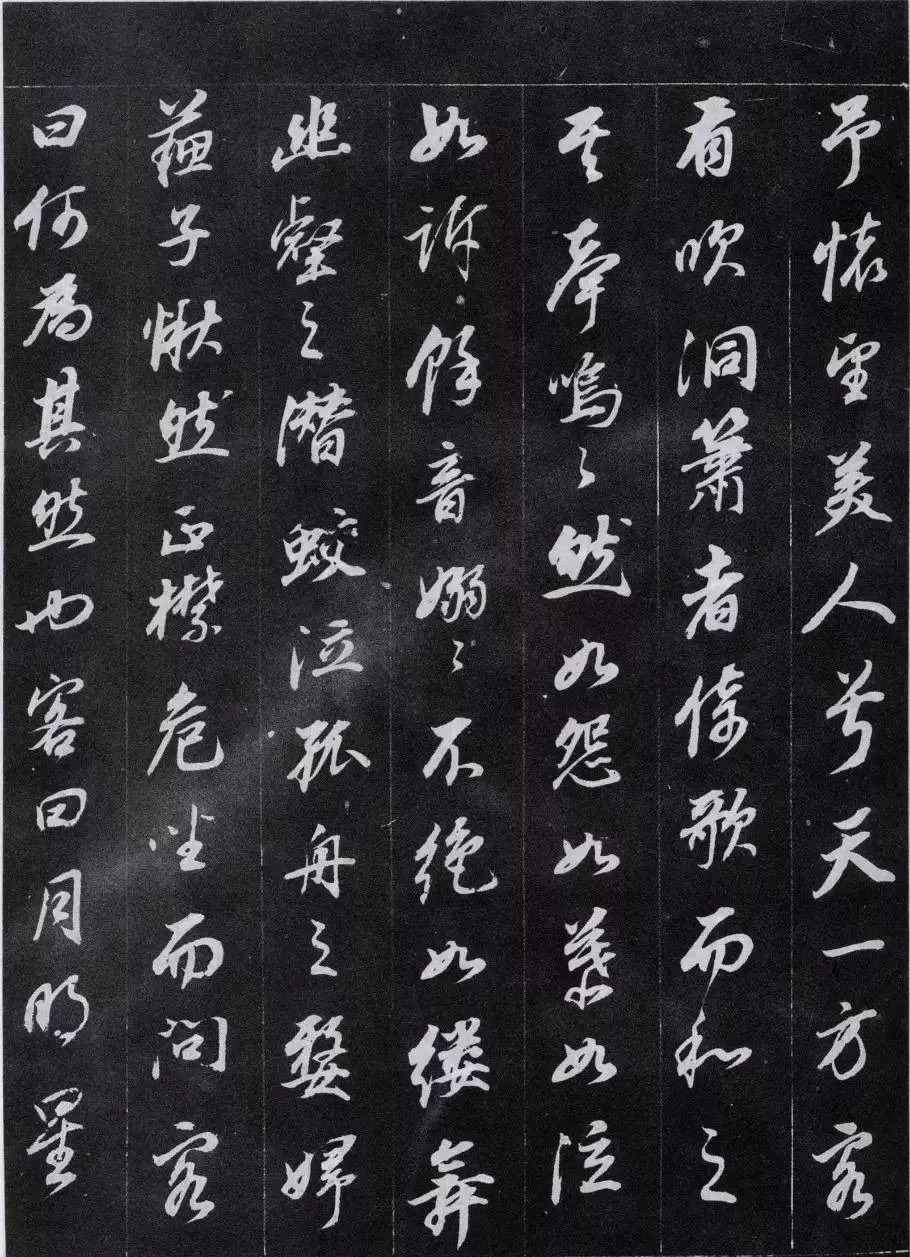 予懷望美人兮天一方客
有吹洞簫者倚歌而和之
其聲嗚〻然如怨如慕如泣
如訴餘音嫋〻不絕如縷舞
幽壑之潛蛟泣孤舟之嫠婦
蘇子愀然正襟危坐而問客
曰何為其然也客曰月明星